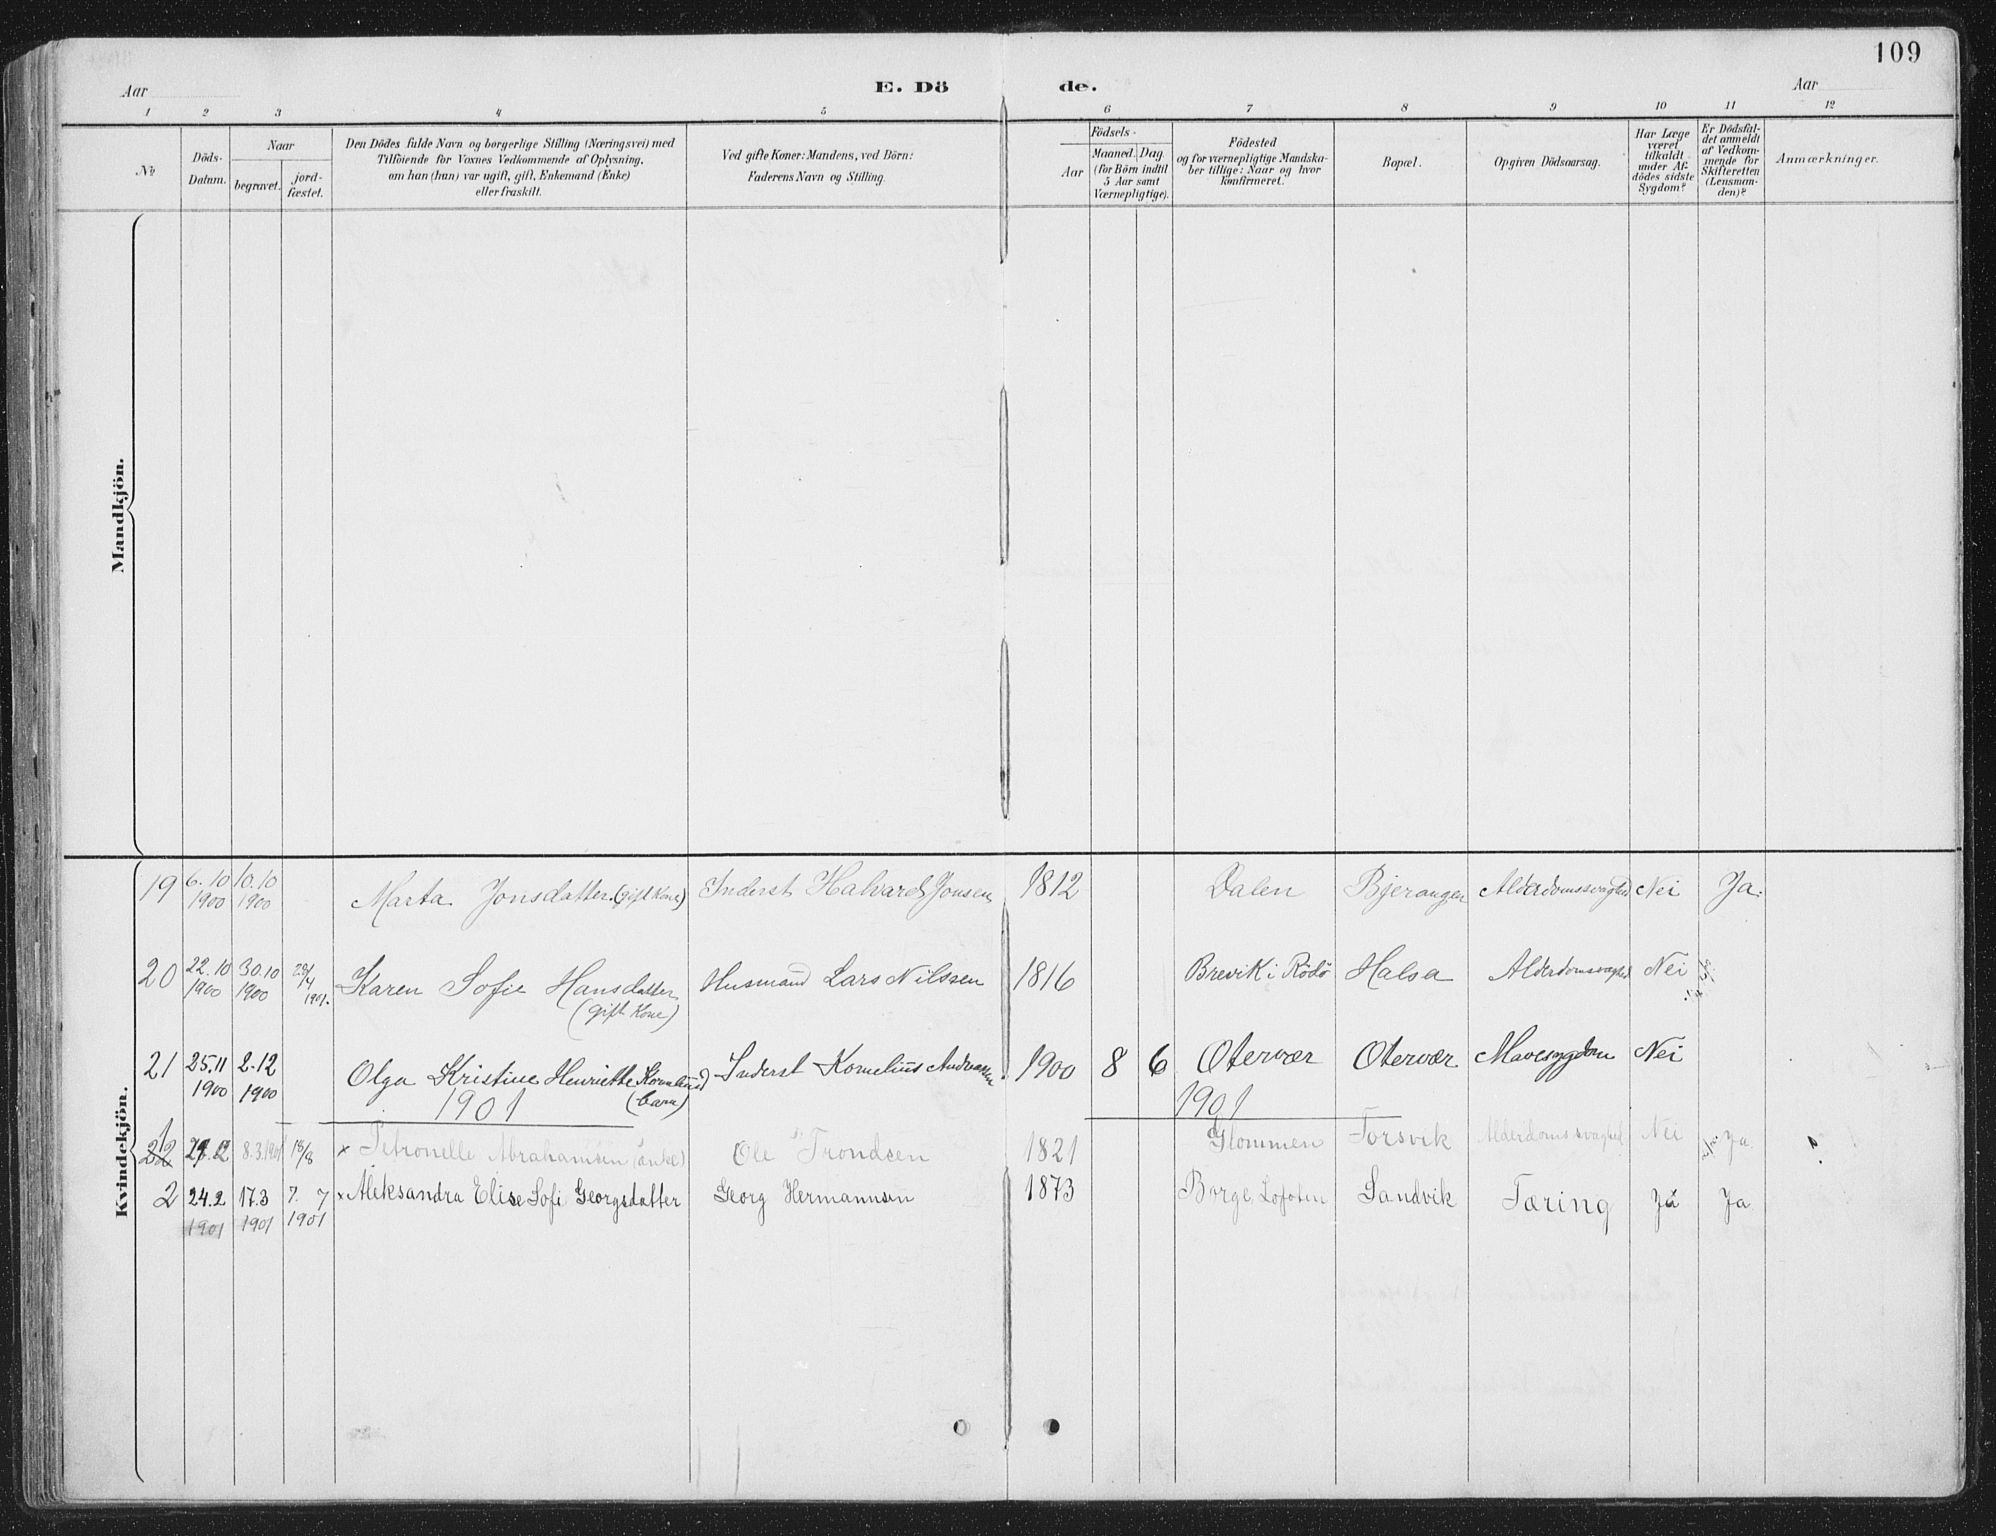 109
Aar E. Dö de. Aar
1 2 3 4 5 6 7 8 9 10 11 12
No
Döds-Datum.
Naar
begravet.
jord-fæstet.
Den Dödes fulde Navn og borgerlige Stilling (Næringsvei) med
Tilföiende for Voxnes Vedkommende af Oplysning,
om han (hun) var ugift, gift, Enkemand (Enke)
eller fraskilt.
Ved gifte Koner: Mandens, ved Börn:
Faderens Navn og Stilling.
Födsels-
Aar
Maaned. Dag
(for Börn indtil
5 Aar samt
Værnepligtige).
Födested
og for værnepligtige Mandska-
ber tillige: Naar og hvor
konfirmeret.
Bopæl.
Opgiven Dödsaarsag.
Har Læge
været
tilkaldt
under Af-
dödes sidste
Sygdom?
Er Dödsfal-
det anmeldt
af Vedkom-
mende for
Skifteretten
(Lensman-
den)?
Anmærkninger.
Mandkjön.
Kvindekjön.
19 6.10 1900 10.10 1900 Marta Jonsdatter (gift Kone) Inderst Halvard Jonsen 1812 Dalen Bjerangen Alderdomssvaghed Nei Ja.
20 22.10 1900 30.10 1900 28/4 1901. Karen Sofie Hansdatter (gift Kone) Husmand Lars Nilssen 1816 Brevik i Rödö Halsa Alderdomsvaghed Nei
21 25.11 1900 2.12 1900 Olga Kristine Henriette Kornelius (barn) Inderst Kornelius Andreassen 1900 8 6 Otervær Otervær Mavesygdom Nei
1901 1901
1 22 8.3.1901 18/8 x Petronelle Abrahamsen (enke) Ole Trondsen 1821 Glommen Forsvik Alderdomssvaghed Nei Ja
2 24.2 1901 17.3 1901 7. 7 1901 x Aleksandra Elise Sofi Georgsdatter Georg Hermannsen 1873 Borge Lofoten Sandvik Tæring Ja Ja